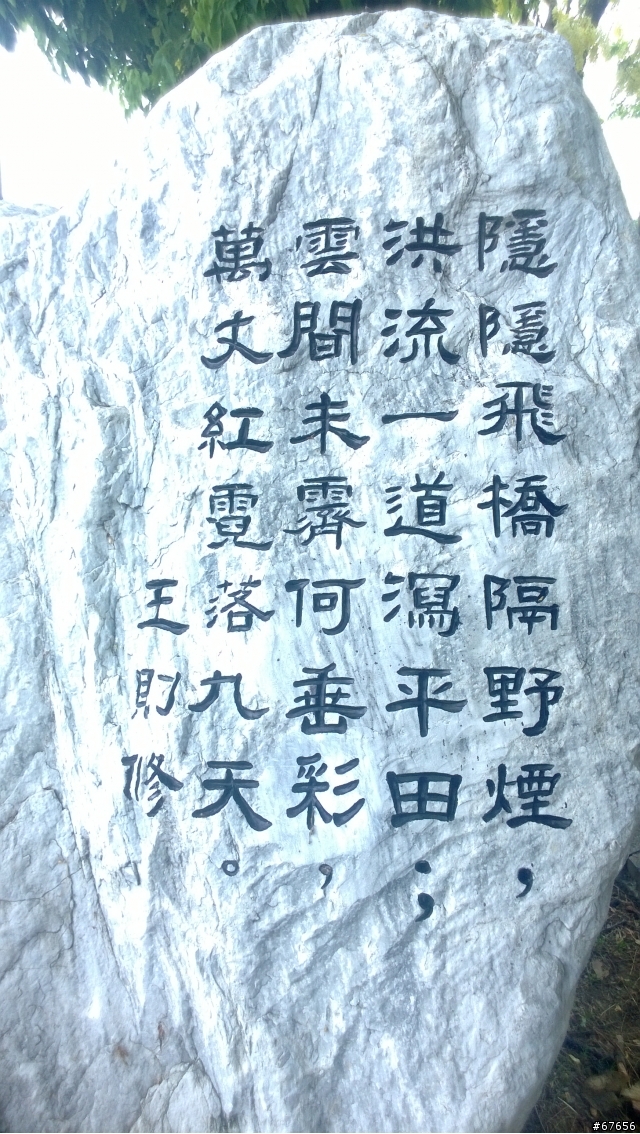 隱隱飛橋隔野煙，
洪流一道瀉平田；
雲間未霽何垂彩，
萬丈紅霓落九天。
王財修
#67656